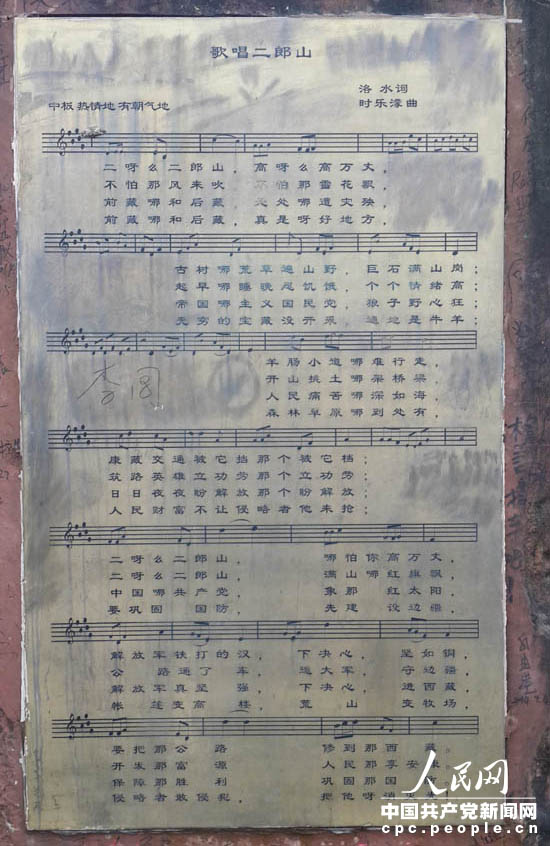 歌唱二郎山
洛水词
中板 热情地 有朝气地
时乐濛曲
二呀么二郎山，高呀么高万丈，
不怕那风来吹，不怕那雪花飘，
前藏哪和后藏，处哪遭灾殃，
前藏哪和后藏，真是呀好地方，
古树哪荒草遍山野，巨石满山岗；
起早哪睡晚忍饥饿，个个情绪高；
帝国哪主义国民党，个个狼子心狂；
无穷的宝藏没开采，遍地野是牛羊；
羊肠小道哪难行走，
开山挑土哪架桥梁，
人民痛苦哪深如海，
森林草原哪到处有，
康藏交通被它挡那个被它挡；
筑路英雄立功劳那个立功劳；
日日夜夜盼解放那个盼解放；
人民财富让侵略者他来抢；
李圆
二呀么二郎山，哪怕你高万丈，
二呀么二郎山，满山哪红旗飘，
中国哪共产党，象那红太阳，
要巩固国防，先建设边疆，
解放军铁打的汉，下决心，坚如钢，
公路通了车，边疆
解放军真坚强，下决心，进西藏，
帐篷变高楼，荒山变牧场，
要把那公路修到那西藏
开发那富源人民
保障那胜利巩固国
侵略者敢侵犯把他呀
人民网
中国共产党新闻网
cpc.people.com.cn